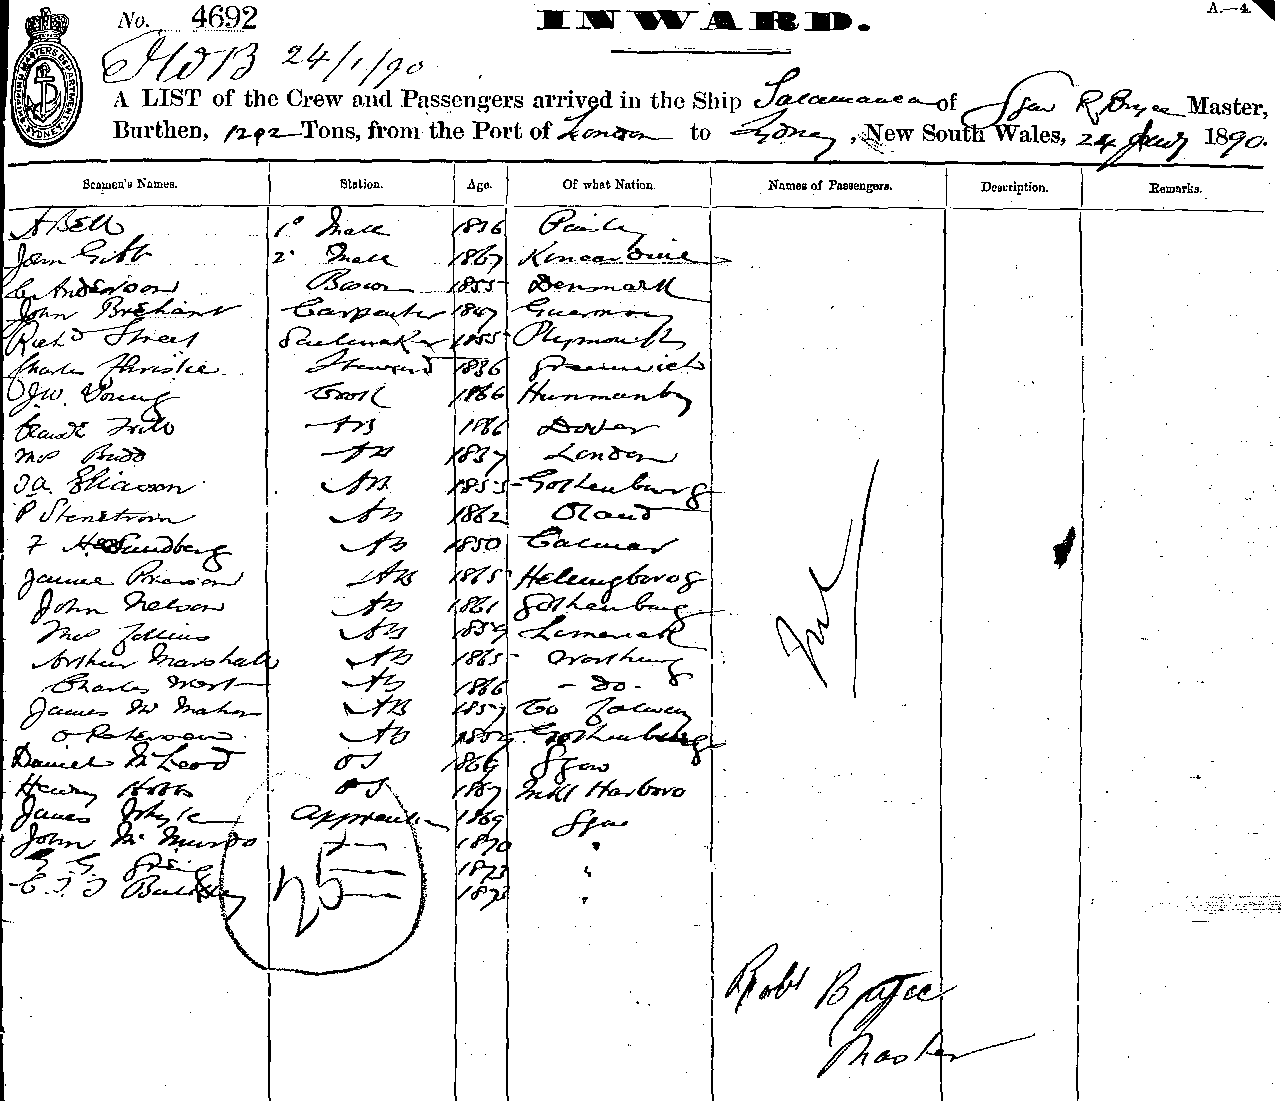 No. 4692
INWARD.
A.—4.
24/1/90
A LIST of the Crew and Passengers arrived in the Ship Salamanca of Sgow R Bryce Master,
Burthen, 1292 Tons, from the Port of London to Sydney, New South Wales, 24 Jany 1890.
Seamen's Names. Station. Age. Of what Nation. Names of Passengers. Description. Remarks.
A Bell 1st Mate 1836 Paisley
John Gibb 2d Mate 1867 Kincardine
C Anderson Bosun 1855 Denmark
John Brehant Carpenter 1847 Guernsey
Richd Street Sailmaker 1855 Plymouth
Charles Christie Steward 1836 Greenwich
J.W. Young Cook 1866 Hunmanby
AB 1866 Dover
Budd AB 1837 London
Eliasson AB 1855 Gothenburg
P Stenstrom AB 1862 Oland
Sundberg AB 1850 Calmar
Pierson AB 1865 Helsingborog
John Nelson AB 1861 Gothenburg
Collins AB 1859 Limerick
Arthur Marshall AB 1865 Worthing
Charles West AB 1866 - Do -
James Mc Mahon AB 1857 Co Galway
O Peterson AB Gothenburg
Daniel McLeod OS 1869 Sgow
Henry Hobbs OS 1867 Mkt Harboro
James Apprentice 1869 Sgow
John Mc Munro 1870 "
G G Greig 1873 "
C. T. T 1873 "
25
Nil
Robt Bryce
Master